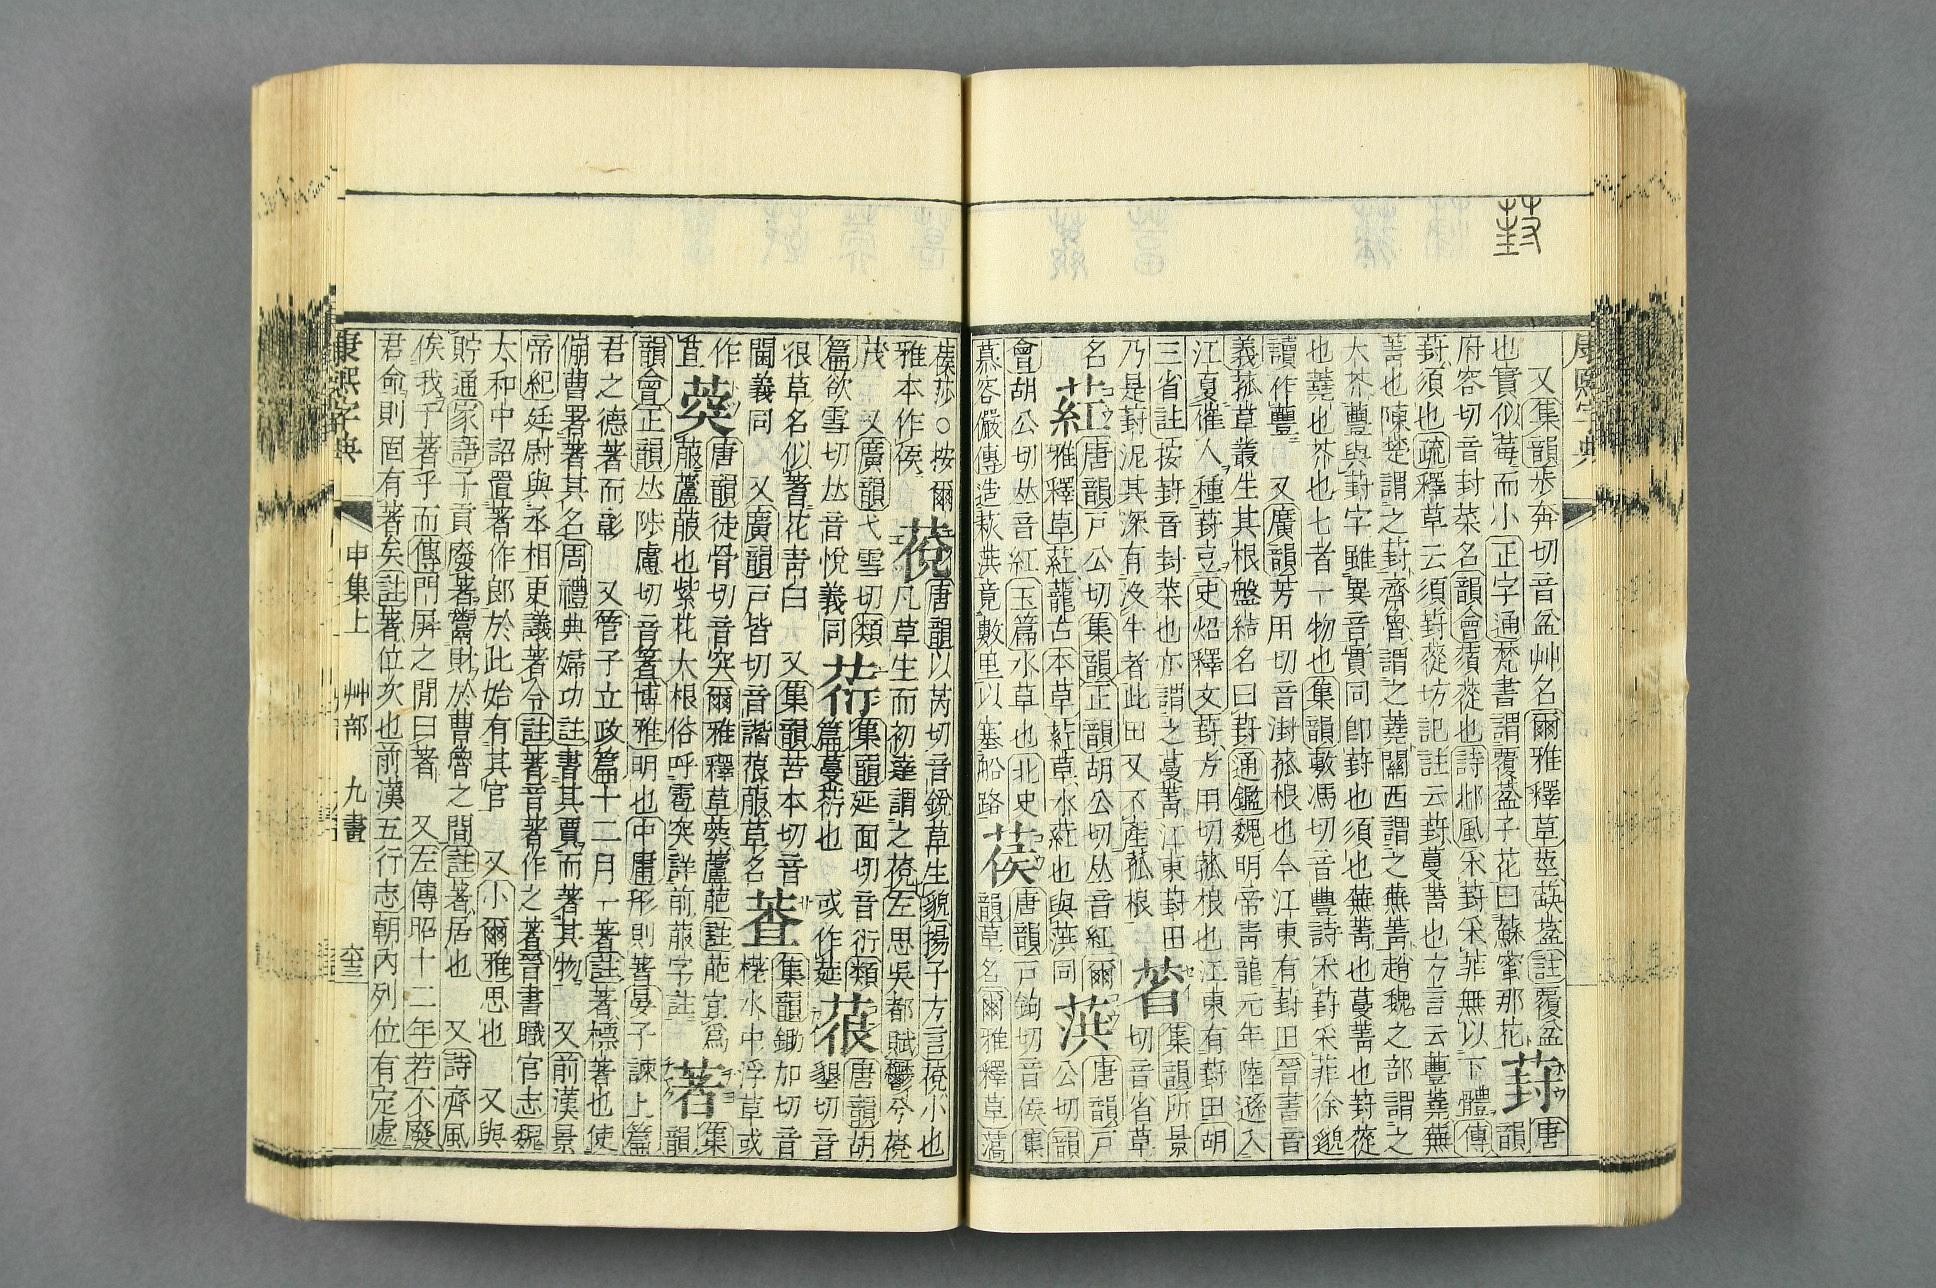 葑
康熙字典
又集韻步奔切音盆艸名爾雅釋草堇蒛葐註覆盆葑唐
也實似莓而小正字通梵書謂覆葐子花曰蘇蜜那花韻
府容切音封菜名韻會蘋蓯也詩邶風采葑采菲無以下體傳
葑須也疏釋草云須葑蓯坊記註云葑蔓菁也方言云蘴蕘蕪
菁也陳楚謂之葑齊魯謂之蕘關西謂之蕪菁趙魏之部謂之
大芥蘴與葑字雖異音實同卽葑也須也蕪菁也蔓菁也葑蓯
也蕘也芥也七者一物也集韻敷馮切音豐詩采葑采菲徐邈
讀作蘴 又廣韻芳用切音澍菰根也今江東有葑田晉書音
義菰草叢生其根盤結名曰葑通鑑魏明帝靑龍元年陸遜入
江夏催人種葑豆史炤釋文葑方用切菰根也江東有葑田胡
三省註按葑音封菜也亦謂之蔓菁江東葑田㨘集韻所景
乃是葑泥其深有沒牛者此田又不產菰根切音省草
名葒唐韻戸公切集韻正韻胡公切𠀤音紅爾葓唐韻戸
雅釋草葒蘢古本草葒草水葒也與葓同公切韻
會胡公切𠀤音紅玉篇水草也北史葔唐韻戸鉤切音侯集
慕容儼傳造荻葓竟數里以塞船路韻草名爾雅釋草薃
葔莎○按爾䓲唐韻以芮切音銳草生貌揚子方言䓲小也
雅本作侯凡草生而初達謂之䓲左思吳都賦鬱兮䓲
茂 又廣韻弋雪切類葕集韻延面切音衍類䓳唐韻胡
篇欲雪切𠀤音悅義同篇蔓葕也 或作莚墾切音
很草名似蓍花靑白 又集韻苦本切音䕓集韻鋤加切音
閫義同 又廣韻戸皆切音諧蒗䓳草名楂水中浮草或
作葖唐韻徒骨切音突爾雅釋草葖蘆萉註萉宜爲著集
苴菔蘆菔也紫花大根俗呼雹突詳前菔字註韻
韻會正韻𠀤陟慮切音箸博雅明也中庸形則著晏子諫上篇
君之德著而彰 又管子立政篇十二月一著註著標著也使
僃曹署著其名周禮典婦功註書其賈而著其物 又前漢景
帝紀廷尉與丞相更議著令註著音著作之著晉書職官志魏
太和中詔置著作郞於此始有其官 又小爾雅思也 又與
貯通家語子貢廢著鬻財於曹魯之閒註著居也 又詩齊風
俟我于著乎而傳門屛之閒曰著 又左傳昭十二年若不廢
君命則固有著矣註著位次也前漢五行志朝內列位有定處
康熙字典 申集上 艸部 九畫